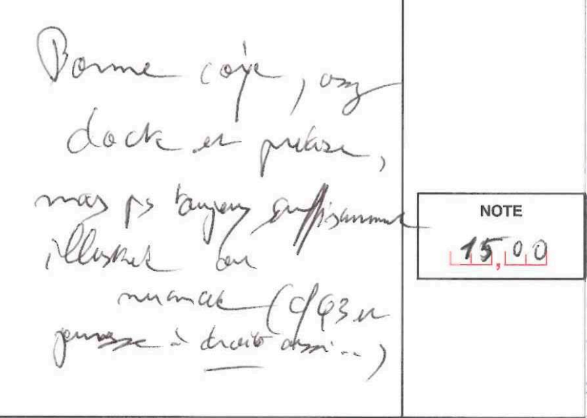 Bonne copie, assez
docte et précise,
mais ps toujours suffisamment
illustrée ou
nuancée (cf Q3 et
jeunesse à droite aussi...)
NOTE
15,00